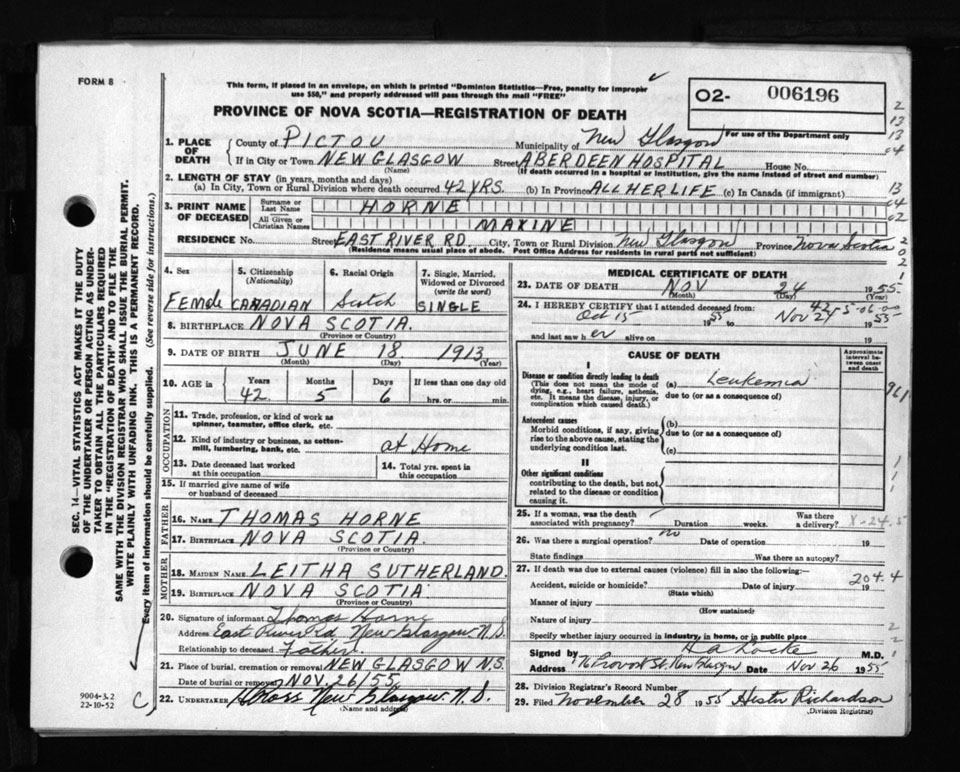 FORM 8
This form, if placed in an envelope, on which is printed "Dominion Statistics—Free, penalty for improper
use $50," and properly addressed will pass through the mail "FREE"
PROVINCE OF NOVA SCOTIA—REGISTRATION OF DEATH
02- 006196
For use of the Department only
1. PLACE OF DEATH
County of PICTOU Municipality of New Glasgow
If in City or Town NEW GLASGOW Street ABERDEEN HOSPITAL House No.
(Name) (If death occurred in a hospital or institution, give the name instead of street and number)
2. LENGTH OF STAY (in years, months and days)
(a) In City, Town or Rural Division where death occurred 42 YRS. (b) In Province ALL HER LIFE (c) In Canada (if immigrant)
3. PRINT NAME OF DECEASED
Surname or Last Name HORNE
All Given or Christian Names MAXINE
RESIDENCE No. Street EAST RIVER RD. City, Town or Rural Division New Glasgow Province Nova Scotia
(Residence means usual place of abode. Post Office Address for residents in rural parts not sufficient)
4. Sex 5. Citizenship (Nationality) 6. Racial Origin 7. Single, Married, Widowed or Divorced (write the word)
Female CANADIAN Scotch SINGLE
8. BIRTHPLACE NOVA SCOTIA.
(Province or Country)
9. DATE OF BIRTH JUNE 18 1913
(Month) (Day) (Year)
10. AGE in Years Months Days If less than one day old
42 5 6 hrs. or min.
OCCUPATION
11. Trade, profession, or kind of work as
spinner, teamster, office clerk, etc.
12. Kind of industry or business, as cotton-
mill, lumbering, bank, etc. at Home
13. Date deceased last worked
at this occupation
14. Total yrs. spent in
this occupation
15. If married give name of wife
or husband of deceased
FATHER
16. NAME THOMAS HORNE
17. BIRTHPLACE NOVA SCOTIA.
(Province or Country)
MOTHER
18. MAIDEN NAME LEITHA SUTHERLAND.
19. BIRTHPLACE NOVA SCOTIA
(Province or Country)
20. Signature of informant Thomas Horne
Address East River Rd, New Glasgow N.S.
Relationship to deceased Father.
21. Place of burial, cremation or removal NEW GLASGOW N.S.
Date of burial or removal NOV. 26/55
22. UNDERTAKER New Glasgow. N.S.
(Name and address)
MEDICAL CERTIFICATE OF DEATH
23. DATE OF DEATH NOV 24 1955
(Month) (Day) (Year)
24. I HEREBY CERTIFY that I attended deceased from:
Oct 15 1955 Nov 24 1955
and last saw her alive on 19
CAUSE OF DEATH
Approximate interval between onset and death
I
Disease or condition directly leading to death
(This does not mean the mode of
dying, e.g., heart failure, asthenia,
etc. It means the disease, injury, or
complication which caused death.)
(a) Leukemia
due to (or as a consequence of)
Antecedent causes
Morbid conditions, if any, giving
rise to the above cause, stating the
underlying condition last
(b)
due to (or as a consequence of)
(c)
II
Other significant conditions
contributing to the death, but not
related to the disease or condition
causing it.
25. If a woman, was the death
associated with pregnancy? no Duration weeks. Was there
a delivery?
26. Was there a surgical operation? Date of operation 19
State findings Was there an autopsy?
27. If death was due to external causes (violence) fill in also the following:—
204.4
Accident, suicide or homicide? Date of injury 19
(State which)
Manner of injury
(How sustained)
Nature of injury
Specify whether injury occurred in industry, in home, or in public place
Signed by M.D.
Address Provost St. New Glasgow Date Nov 26 1955
28. Division Registrar's Record Number
29. Filed November 28 1955 Hester Richardson
(Division Registrar)
SEC. 14—VITAL STATISTICS ACT MAKES IT THE DUTY
OF THE UNDERTAKER OR PERSON ACTING AS UNDER-
TAKER TO OBTAIN ALL THE PARTICULARS REQUIRED
IN THE "REGISTRATION OF DEATH" AND TO FILE THE
SAME WITH THE DIVISION REGISTRAR WHO SHALL ISSUE THE BURIAL PERMIT.
WRITE PLAINLY WITH UNFADING INK. THIS IS A PERMANENT RECORD.
Every item of information should be carefully supplied. (See reverse side for instructions.)
9004-3.2
22-10-52